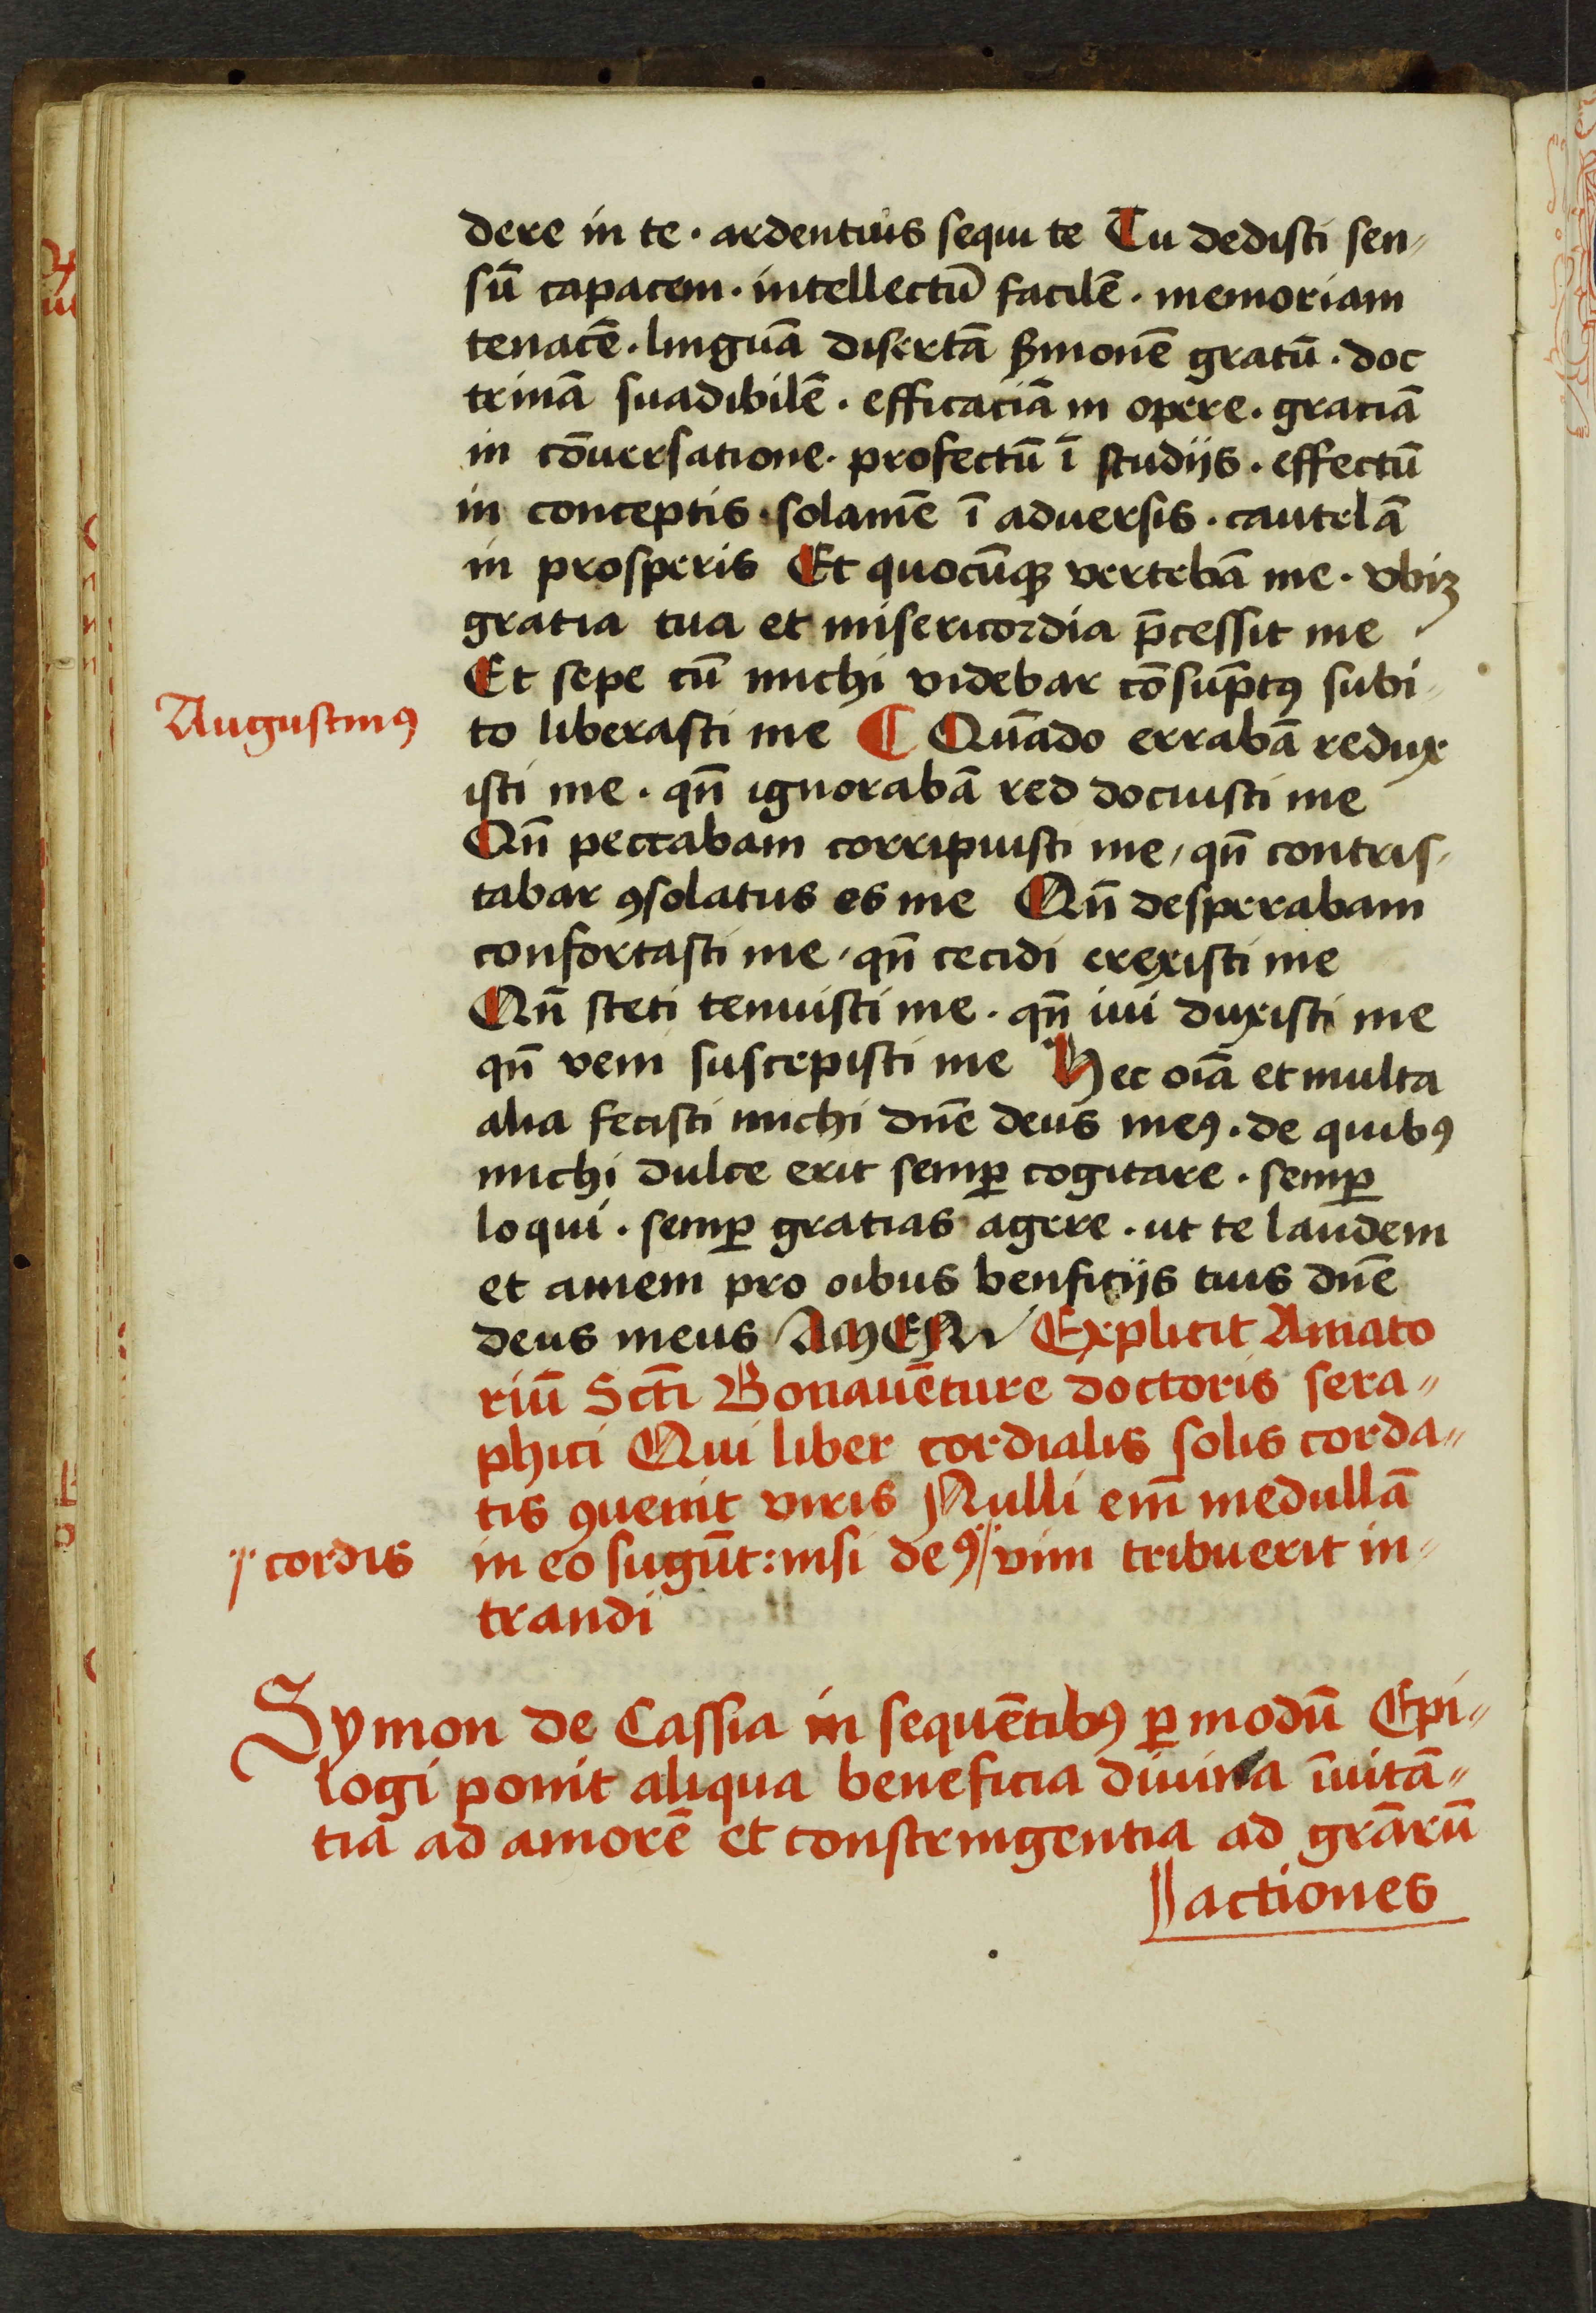 dere in te · ardentius sequi te Tu dedisti sen„
sū capacem · intellectū facilē · memoriam
tenacē · linguā disertā ẜmonē gratū · doc
trinā suadibilē · efficaciā in opere · gratiā
in cōuersatione · profectū ī studijs · effectū
in conceptis · solamē ī aduersis · cautelā
in prosperis Et quocūqꝫ vertebā me · vbiꝫ
gratia tua et misericordia p̄cessit me ·
Et sepe cū michi videbar cōsūptꝰ subi„
Augustinꝰ
to liberasti me ¶ Quādo errabā redux
isti me · qn̄ ignorabā red docuisti me
Qn̄ peccabam corripuisti me, qn̄ contris„
tabar ꝯsolatus es me Qn̄ desperabam
confortasti me, qn̄ cecidi erexisti me
Qn̄ steti tenuisti me · qn̄ iui duxisti me
qn̄ veni suscepisti me Hec oīa et multa
alia fecisti michi dn̄e deus meꝰ · de quibꝰ
michi dulce erit semꝑ cogitare · semꝑ
loqui · semꝑ gratias agere · ut te laudem
et amem pro oībus benficijs tuis dn̄e
deus meus AMEN Explicit Amato
riū Sct̄i Bonauēture doctoris sera„
phici Qui liber cordialis solis corda„
tis ꝯuenit viris Nulli em̄ medullā
cordis
in eo sugūt: nisi deꝰ vim tribuerit in„
trandi
Symon de Cassia in sequētibꝰ ꝑ modū Epi„
logi ponit aliqua beneficia diuina īuitā„
tia ad amorē et constringentia ad grāꝝ
actiones